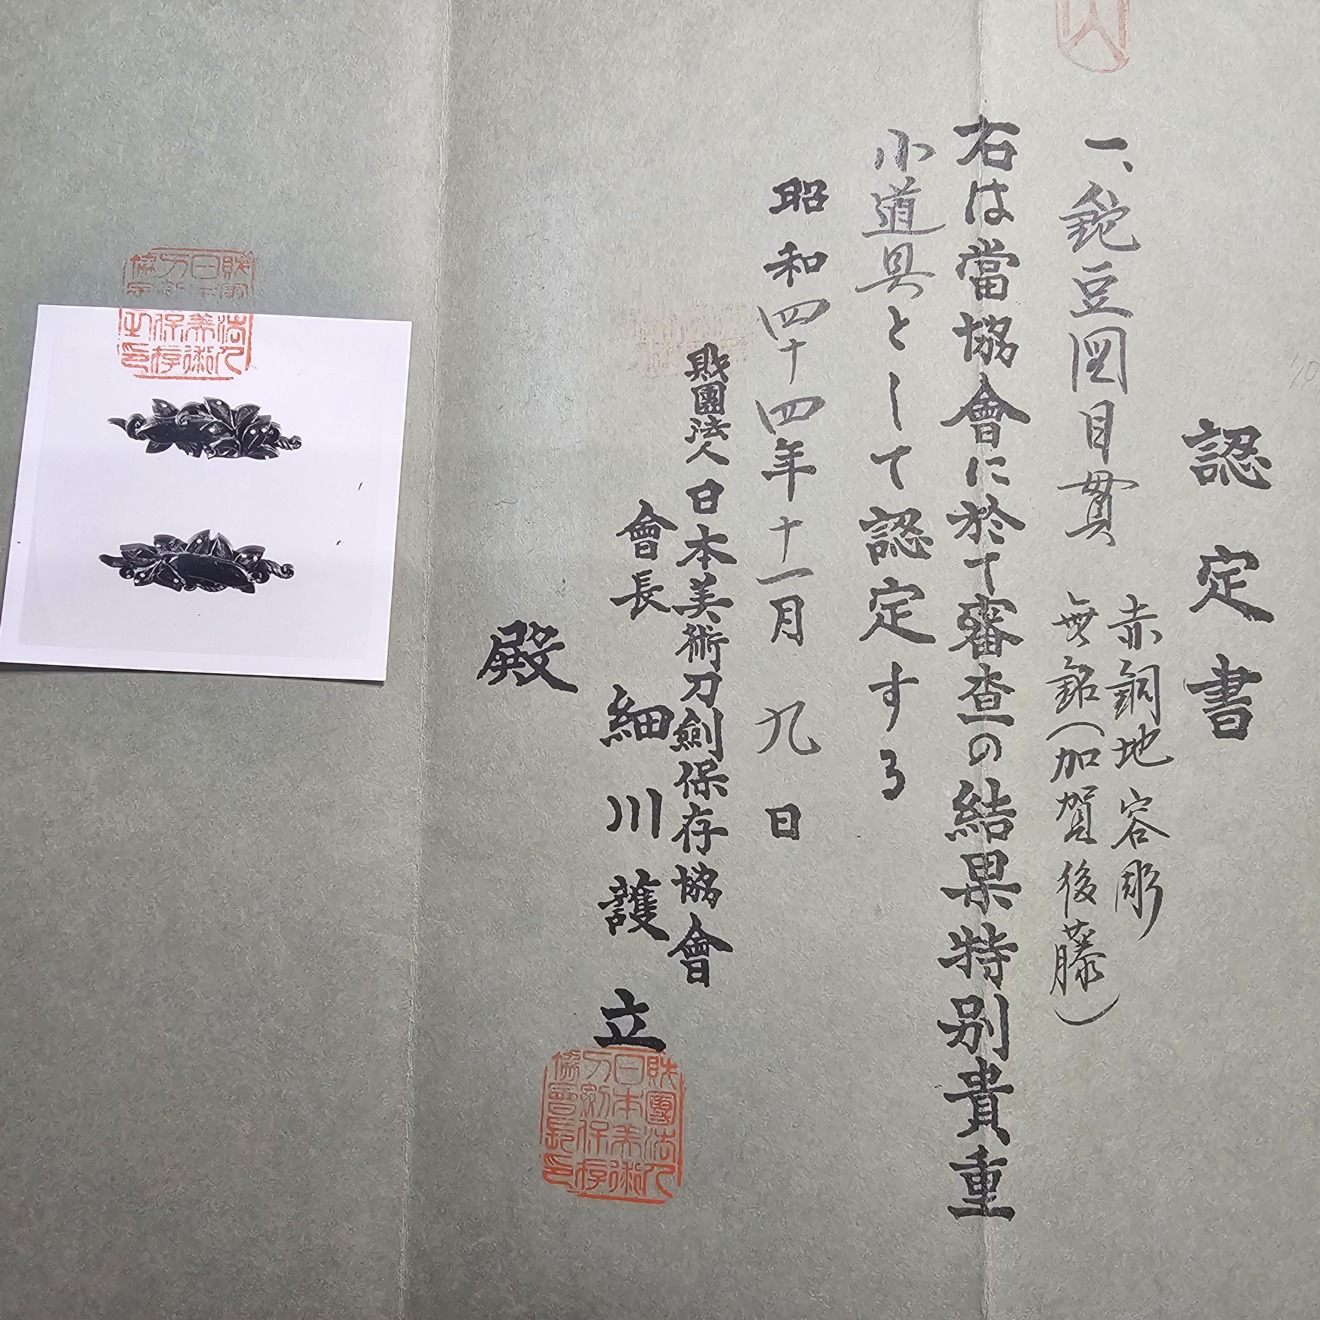 認定書
一、鉈豆図目貫
赤銅地容彫
無銘(加賀後藤)
右は當協會に於て審査の結果特別貴重
小道具として認定する
昭和四十四年十一月九日
財團法人日本美術刀劍保存協會
會長 細川護立
殿
財團法人
日本美術
刀劍保存
協會長印
財團法人
日本美術
刀劍保存
協會之印